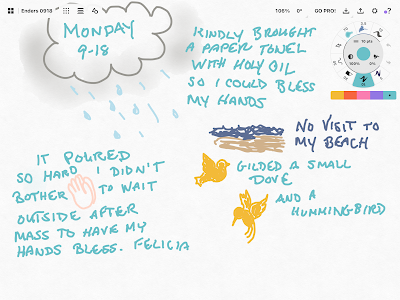 Enders 0918
106%
0°
GO PRO!
MONDAY
9-18
IT POURED
SO HARD I DIDN'T
BOTHER TO WAIT
OUTSIDE AFTER
MASS TO HAVE MY
HANDS BLESS. FELICIA
KINDLY BROUGHT
A PAPER TOWEL
WITH HOLY OIL
SO I COULD BLESS
MY HANDS
NO VISIT TO
MY BEACH
GILDED A SMALL
DOVE
AND A
HUMMINGBIRD